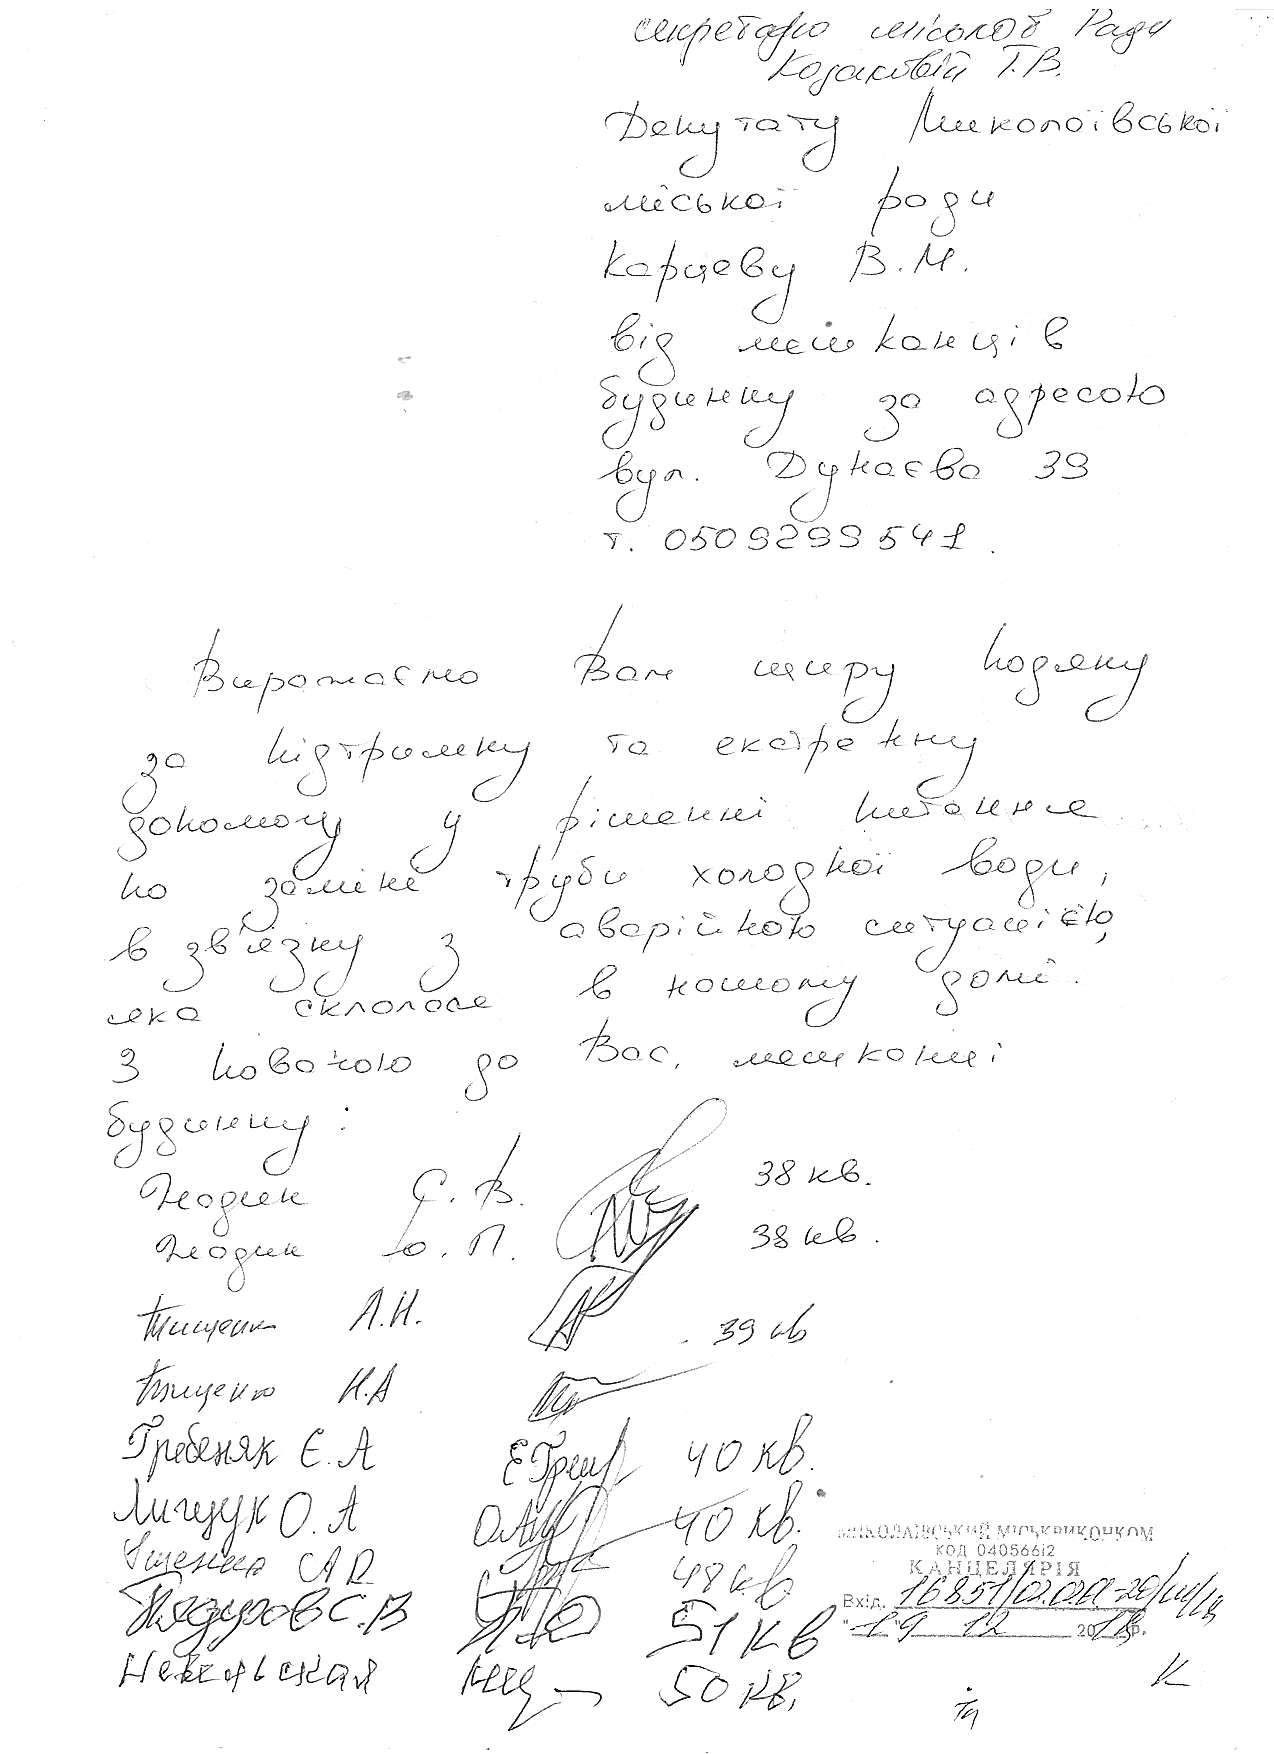 секретарю міської Ради
Козаковій Т.В.
Депутату Миколаївської
міської ради
Карцеву В.М.
від мешканців
будинку за адресою
вул. Дунаєва 39
т. 0509299541
Виражаємо Вам щиру подяку
за підтримку та екстренну
допомогу у рішенні питання
по заміні труби холодної води,
в зв'язку з аварійною ситуацією,
яка склалася в нашому домі.
З повагою до Вас, мешканці
будинку:
С.В. 38 кв.
Ю.П. 38 кв.
Тищенко Л.Н. 39 кв
Тищенко Н.А
Гребеняк Є.А 40 кв.
Лищук О.А 40 кв.
48 кв.
С.В 51 кв
50 кв.
МИКОЛАЇВСЬКИЙ МІСЬКВИКОНКОМ
КОД 04056612
КАНЦЕЛЯРІЯ
Вхід. 16851/02.02.01-20/
"19" 12 2018р.